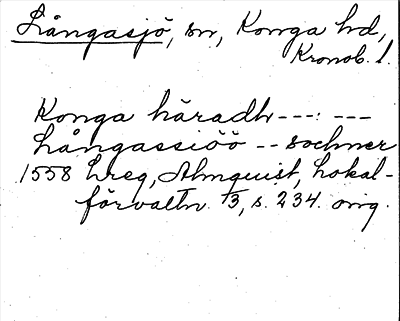 Långasjö, sn, Konga hd,
Kronob. l.
Konga häradh ---: ---
Långassiöö -- sochner
1558 Lreg, Almquist, Lokal-
förvaltn. 1/3, s. 234. orig.